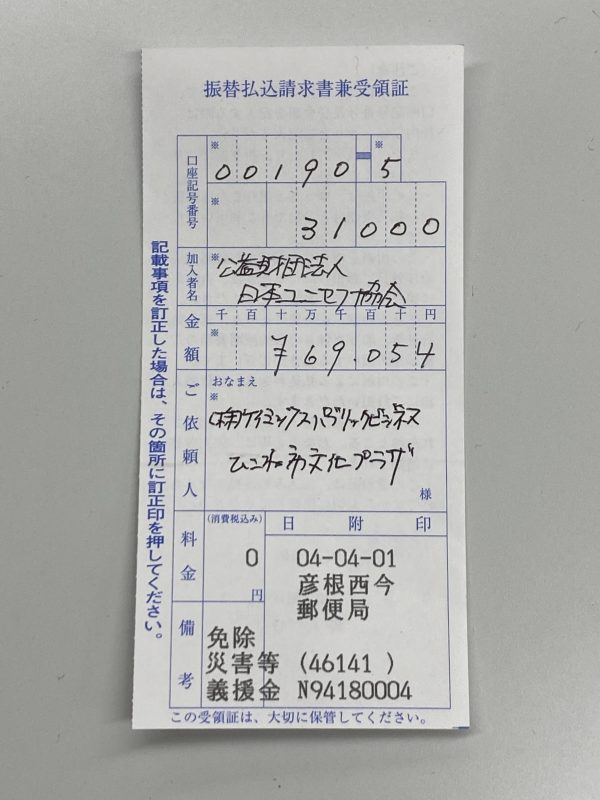 振替払込請求書兼受領証
口座記号番号
※ 00190-※5
※ 31000
加入者名
※公益財団法人
日本ユニセフ協会
金額
千百十万千百十円
※ ¥69.054
ご依頼人
おなまえ
※
(株)ケイミックスパブリックビジネス
ひこね市文化プラザ
様
料金
(消費税込み)
0
円
日附印
04-04-01
彦根西今
郵便局
備考
免除
災害等 (46141 )
義援金 N94180004
この受領証は、大切に保管してください。
記載事項を訂正した場合は、その箇所に訂正印を押してください。